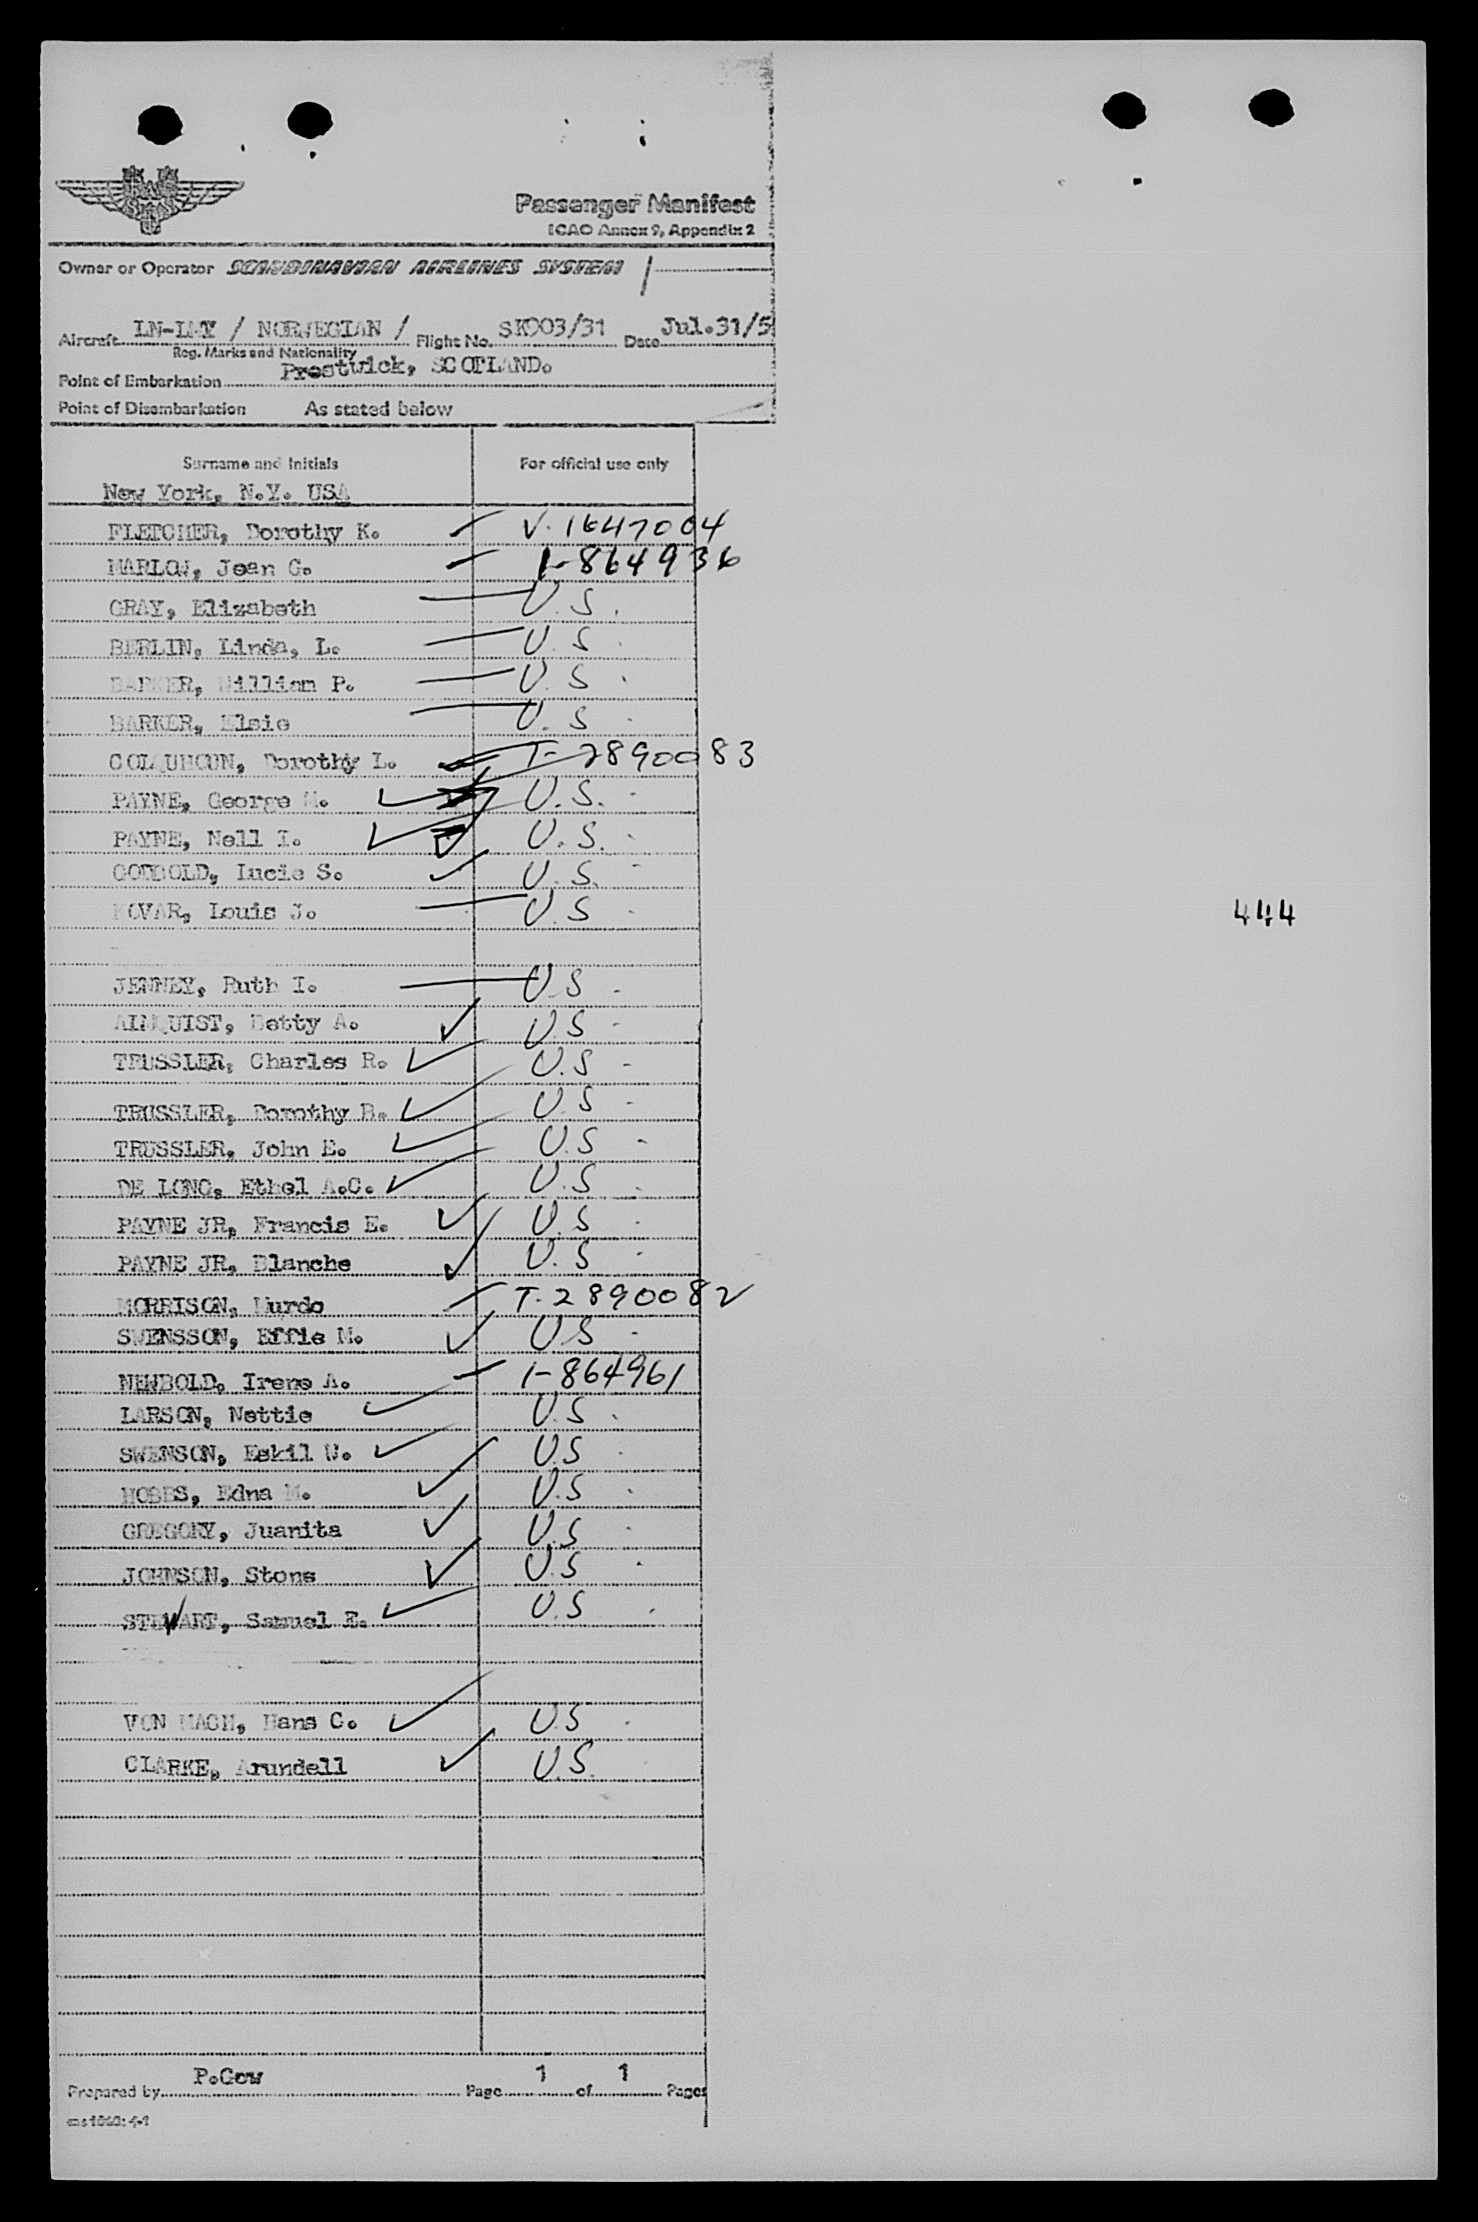 Passenger Manifest
ICAO Annex 9, Appendix 2
Owner or Operator SCANDINAVIAN AIRLINES SYSTEM
Aircraft LN-LMY / NORWEGIAN / Flight No. SK903/31 Date Jul.31/5
Reg. Marks and Nationality
Point of Embarkation Prestwick, SCOTLAND.
Point of Disembarkation As stated below
Surname and Initials For official use only
New York, N.Y. USA
FLETCHER, Dorothy K. V. 1647004
MARLOW, Jean G. 1-864936
GRAY, Elizabeth U.S.
BERLIN, Linda, L. U.S.
BARKER, William P. U.S.
BARKER, Elsie U.S.
COLQUHOUN, Dorothy L. T-2890083
PAYNE, George M. U.S.
PAYNE, Nell I. U.S.
GODBOLD, Lucie S. U.S.
KOVAR, Louis J. U.S
444
JENNEY, Ruth I. U.S
ALMQUIST, Betty A. U.S
TRUSSLER, Charles R. U.S
TRUSSLER, Dorothy B. U.S
TRUSSLER, John E. U.S
DE LONG, Ethel A.C. U.S
PAYNE JR, Francis E. U.S
PAYNE JR, Blanche U.S
MORRISON, Murdo T-2890082
SWENSSON, Effie M. U.S
NEWBOLD, Irene A. 1-864961
LARSON, Nettie U.S.
SWENSON, Eskil U.S
HOBBS, Edna M. U.S
GREGORY, Juanita U.S
JOHNSON, Stone U.S
STEWART, Samuel E. U.S
VON MACH, Hans C. U.S
CLARKE, Arundell U.S.
Prepared by P.Cow Page 1 of 1 Pages